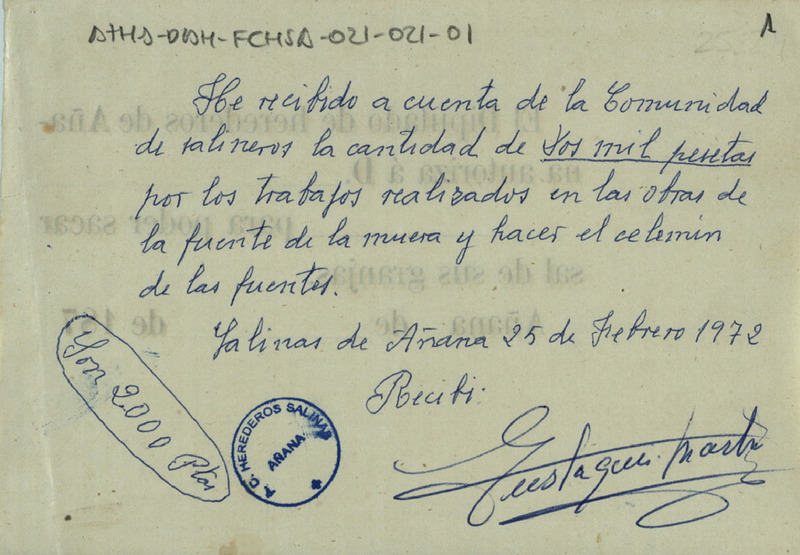 ATHA-DAH-FCHSA-021-021-01
1
He recibido a cuenta de la Comunidad
de salineros la cantidad de Dos mil pesetas
por los trabajos realizados en las obras de
la fuente de la muera y hacer el celemin
de las fuentes.
Salinas de Añana 25 de Febrero 1972
Recibi:
Son 2000 Ptas
HEREDEROS SALINAS
AÑANA
El Diputado de herederos de Aña-
na autoriza á D.
para poder sacar
sal de sus granjas
Añana de de 197